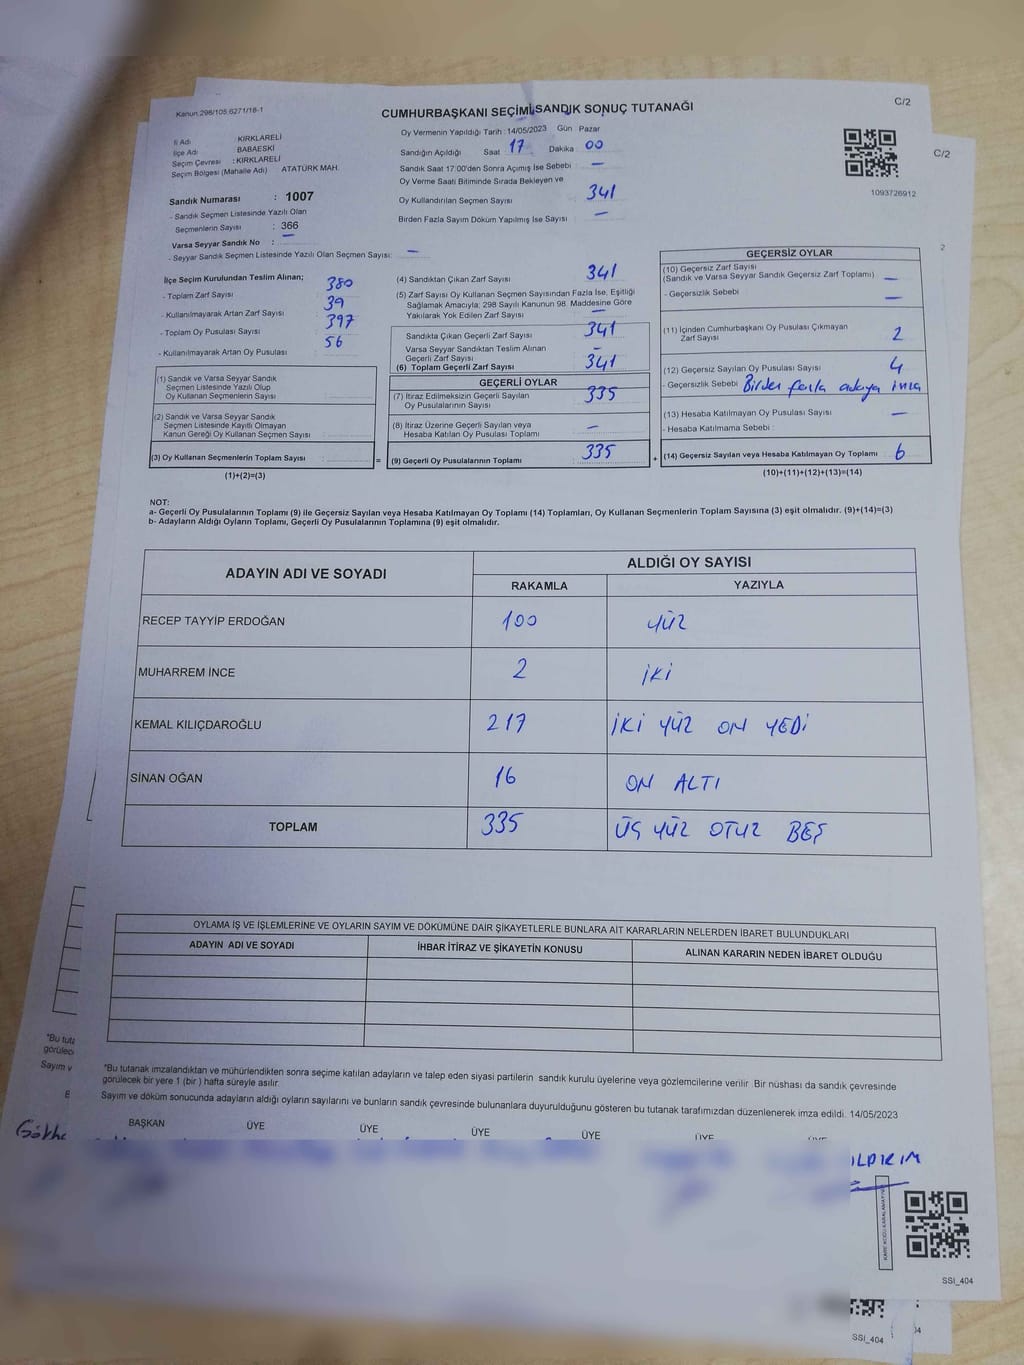 Kanun:298/105,6271/18-1
CUMHURBAŞKANI SEÇİMİ SANDIK SONUÇ TUTANAĞI
C/2
İl Adı : KIRKLARELİ
İlçe Adı : BABAESKİ
Seçim Çevresi : KIRKLARELİ
Seçim Bölgesi (Mahalle Adı) ATATÜRK MAH.
Sandık Numarası : 1007
- Sandık Seçmen Listesinde Yazılı Olan
Seçmenlerin Sayısı : 366
Varsa Seyyar Sandık No : –
- Seyyar Sandık Seçmen Listesinde Yazılı Olan Seçmen Sayısı: –
Oy Vermenin Yapıldığı Tarih : 14/05/2023 Gün Pazar
Sandığın Açıldığı Saat 17 Dakika 00
Sandık Saat 17:00'den Sonra Açımış İse Sebebi : –
Oy Verme Saati Bitiminde Sırada Bekleyen ve
Oy Kullandırılan Seçmen Sayısı 341
Birden Fazla Sayım Döküm Yapılmış İse Sayısı –
1093726912
C/2
2
İlçe Seçim Kurulundan Teslim Alınan;
- Toplam Zarf Sayısı : 380
- Kullanılmayarak Artan Zarf Sayısı : 39
- Toplam Oy Pusulası Sayısı : 397
- Kullanılmayarak Artan Oy Pusulası : 56
(1) Sandık ve Varsa Seyyar Sandık
Seçmen Listesinde Yazılı Olup
Oy Kullanan Seçmenlerin Sayısı :
(2) Sandık ve Varsa Seyyar Sandık
Seçmen Listesinde Kayıtlı Olmayan
Kanun Gereği Oy Kullanan Seçmen Sayısı :
(3) Oy Kullanan Seçmenlerin Toplam Sayısı :
(1)+(2)=(3)
(4) Sandıktan Çıkan Zarf Sayısı : 341
(5) Zarf Sayısı Oy Kullanan Seçmen Sayısından Fazla İse, Eşitliği
Sağlamak Amacıyla; 298 Sayılı Kanunun 98. Maddesine Göre
Yakılarak Yok Edilen Zarf Sayısı : –
Sandıkta Çıkan Geçerli Zarf Sayısı : 341
Varsa Seyyar Sandıktan Teslim Alınan
Geçerli Zarf Sayısı : –
(6) Toplam Geçerli Zarf Sayısı : 341
GEÇERLİ OYLAR
(7) İtiraz Edilmeksizin Geçerli Sayılan
Oy Pusulalarının Sayısı : 335
(8) İtiraz Üzerine Geçerli Sayılan veya
Hesaba Katılan Oy Pusulası Toplamı : –
= (9) Geçerli Oy Pusulalarının Toplamı : 335
GEÇERSİZ OYLAR
(10) Geçersiz Zarf Sayısı
(Sandık ve Varsa Seyyar Sandık Geçersiz Zarf Toplamı) : –
- Geçersizlik Sebebi : –
(11) İçinden Cumhurbaşkanı Oy Pusulası Çıkmayan
Zarf Sayısı : 2
(12) Geçersiz Sayılan Oy Pusulası Sayısı : 4
- Geçersizlik Sebebi : Birden fazla adaya imza
(13) Hesaba Katılmayan Oy Pusulası Sayısı : –
- Hesaba Katılmama Sebebi :
+ (14) Geçersiz Sayılan veya Hesaba Katılmayan Oy Toplamı : 6
(10)+(11)+(12)+(13)=(14)
NOT:
a- Geçerli Oy Pusulalarının Toplamı (9) ile Geçersiz Sayılan veya Hesaba Katılmayan Oy Toplamı (14) Toplamları, Oy Kullanan Seçmenlerin Toplam Sayısına (3) eşit olmalıdır. (9)+(14)=(3)
b- Adayların Aldığı Oyların Toplamı, Geçerli Oy Pusulalarının Toplamına (9) eşit olmalıdır.
ADAYIN ADI VE SOYADI
ALDIĞI OY SAYISI
RAKAMLA YAZIYLA
RECEP TAYYİP ERDOĞAN 100 YÜZ
MUHARREM İNCE 2 İKİ
KEMAL KILIÇDAROĞLU 217 İKİ YÜZ ON YEDİ
SİNAN OĞAN 16 ON ALTI
TOPLAM 335 ÜÇ YÜZ OTUZ BEŞ
OYLAMA İŞ VE İŞLEMLERİNE VE OYLARIN SAYIM VE DÖKÜMÜNE DAİR ŞİKAYETLERLE BUNLARA AİT KARARLARIN NELERDEN İBARET BULUNDUKLARI
ADAYIN ADI VE SOYADI İHBAR İTİRAZ VE ŞİKAYETİN KONUSU ALINAN KARARIN NEDEN İBARET OLDUĞU
*Bu tuta
görülec
Sayım v
*Bu tutanak imzalandıktan ve mühürlendikten sonra seçime katılan adayların ve talep eden siyasi partilerin sandık kurulu üyelerine veya gözlemcilerine verilir. Bir nüshası da sandık çevresinde
görülecek bir yere 1 (bir ) hafta süreyle asılır.
Sayım ve döküm sonucunda adayların aldığı oyların sayılarını ve bunların sandık çevresinde bulunanlara duyurulduğunu gösteren bu tutanak tarafımızdan düzenlenerek imza edildi. 14/05/2023
BAŞKAN ÜYE ÜYE ÜYE ÜYE ÜYE
ILDIRIM
SSI_404
SSI_404